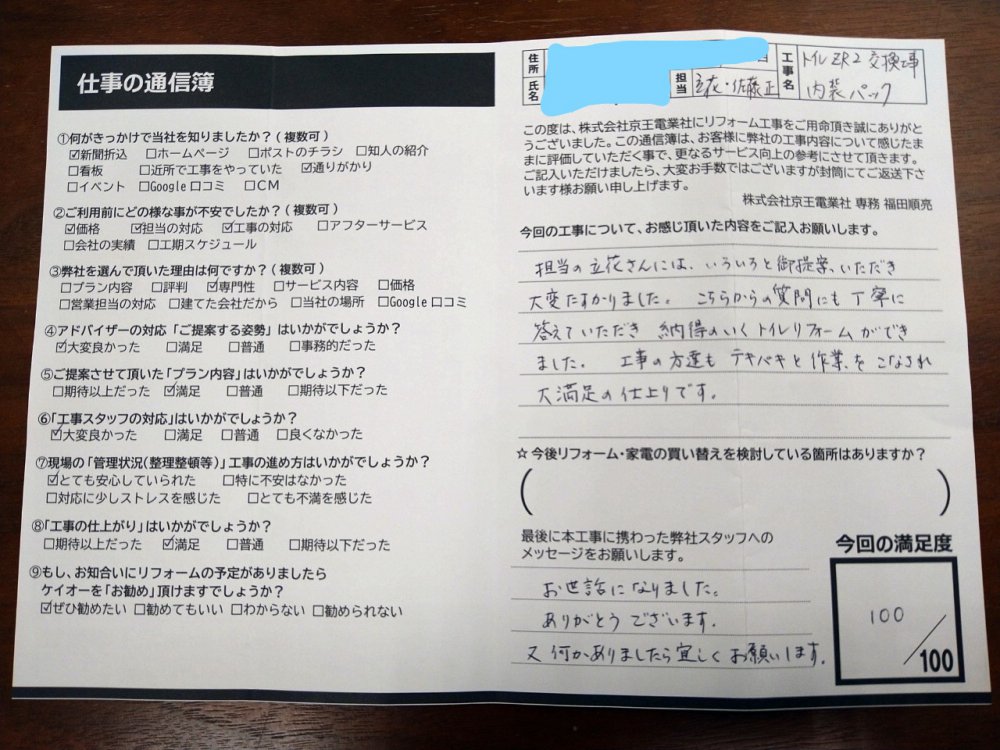 仕事の通信簿
①何がきっかけで当社を知りましたか？(複数可)
☑新聞折込 □ホームページ □ポストのチラシ □知人の紹介
□看板 □近所で工事をやっていた ☑通りがかり
□イベント □Google口コミ □CM
②ご利用前にどの様な事が不安でしたか？(複数可)
☑価格 ☑担当の対応 ☑工事の対応 □アフターサービス
□会社の実績 □工期スケジュール
③弊社を選んで頂いた理由は何ですか？(複数可)
□プラン内容 □評判 ☑専門性 □サービス内容 □価格
□営業担当の対応 □建てた会社だから □当社の場所 □Google口コミ
④アドバイザーの対応「ご提案する姿勢」はいかがでしょうか？
☑大変良かった □満足 □普通 □事務的だった
⑤ご提案させて頂いた「プラン内容」はいかがでしょうか？
□期待以上だった ☑満足 □普通 □期待以下だった
⑥「工事スタッフの対応」はいかがでしょうか？
☑大変良かった □満足 □普通 □良くなかった
⑦現場の「管理状況(整理整頓等)」工事の進め方はいかがでしょうか？
☑とても安心していられた □特に不安はなかった
□対応に少しストレスを感じた □とても不満を感じた
⑧「工事の仕上がり」はいかがでしょうか？
□期待以上だった ☑満足 □普通 □期待以下だった
⑨もし、お知合いにリフォームの予定がありましたら
ケイオーを「お勧め」頂けますでしょうか？
☑ぜひ勧めたい □勧めてもいい □わからない □勧められない
住所
氏名
日
担当 立花・佐藤正
工事名 トイレZR2交換工事
内装パック
この度は、株式会社京王電業社にリフォーム工事をご用命頂き誠にありがと
うございました。この通信簿は、お客様に弊社の工事内容について感じたま
まに評価していただく事で、更なるサービス向上の参考にさせて頂きます。
ご記入いただけましたら、大変お手数ではございますが封筒にてご返送下さ
います様お願い申し上げます。
株式会社京王電業社 専務 福田順亮
今回の工事について、お感じ頂いた内容をご記入お願いします。
担当の立花さんには、いろいろと御提案いただき
大変たすかりました。こちらからの質問にも丁寧に
答えていただき 納得のいくトイレリフォームができ
ました。 工事の方達も テキパキと作業をこなされ
大満足の仕上りです。
☆今後リフォーム・家電の買い替えを検討している箇所はありますか？
( )
最後に本工事に携わった弊社スタッフへの
メッセージをお願いします。
お世話になりました。
ありがとうございます。
又何かありましたら宜しくお願いします。
今回の満足度
100
/100